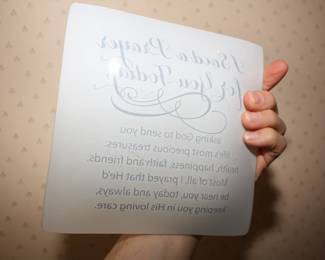 I Said a Prayer
for You Today
asking God to send you
life's most precious treasures:
health, happiness, faith and friends.
Most of all, I prayed that He'd
be near you, today and always,
keeping you in His loving care.